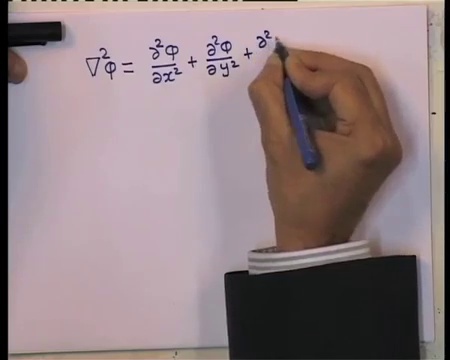 ∇²φ = ∂²φ/∂x² + ∂²φ/∂y² + ∂²